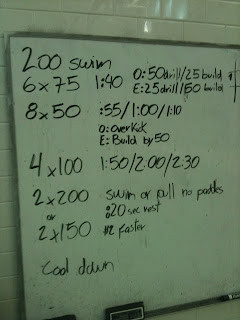 200 swim
6x75 1:40 O: 50 drill/25 build
E: 25 drill/50 build
8x50 :55/1:00/1:10
O: overkick
E: Build by 50
4x100 1:50/2:00/2:30
2x200 swim or pull no paddles
or :20 sec rest
2x150 #2 faster
Cool down